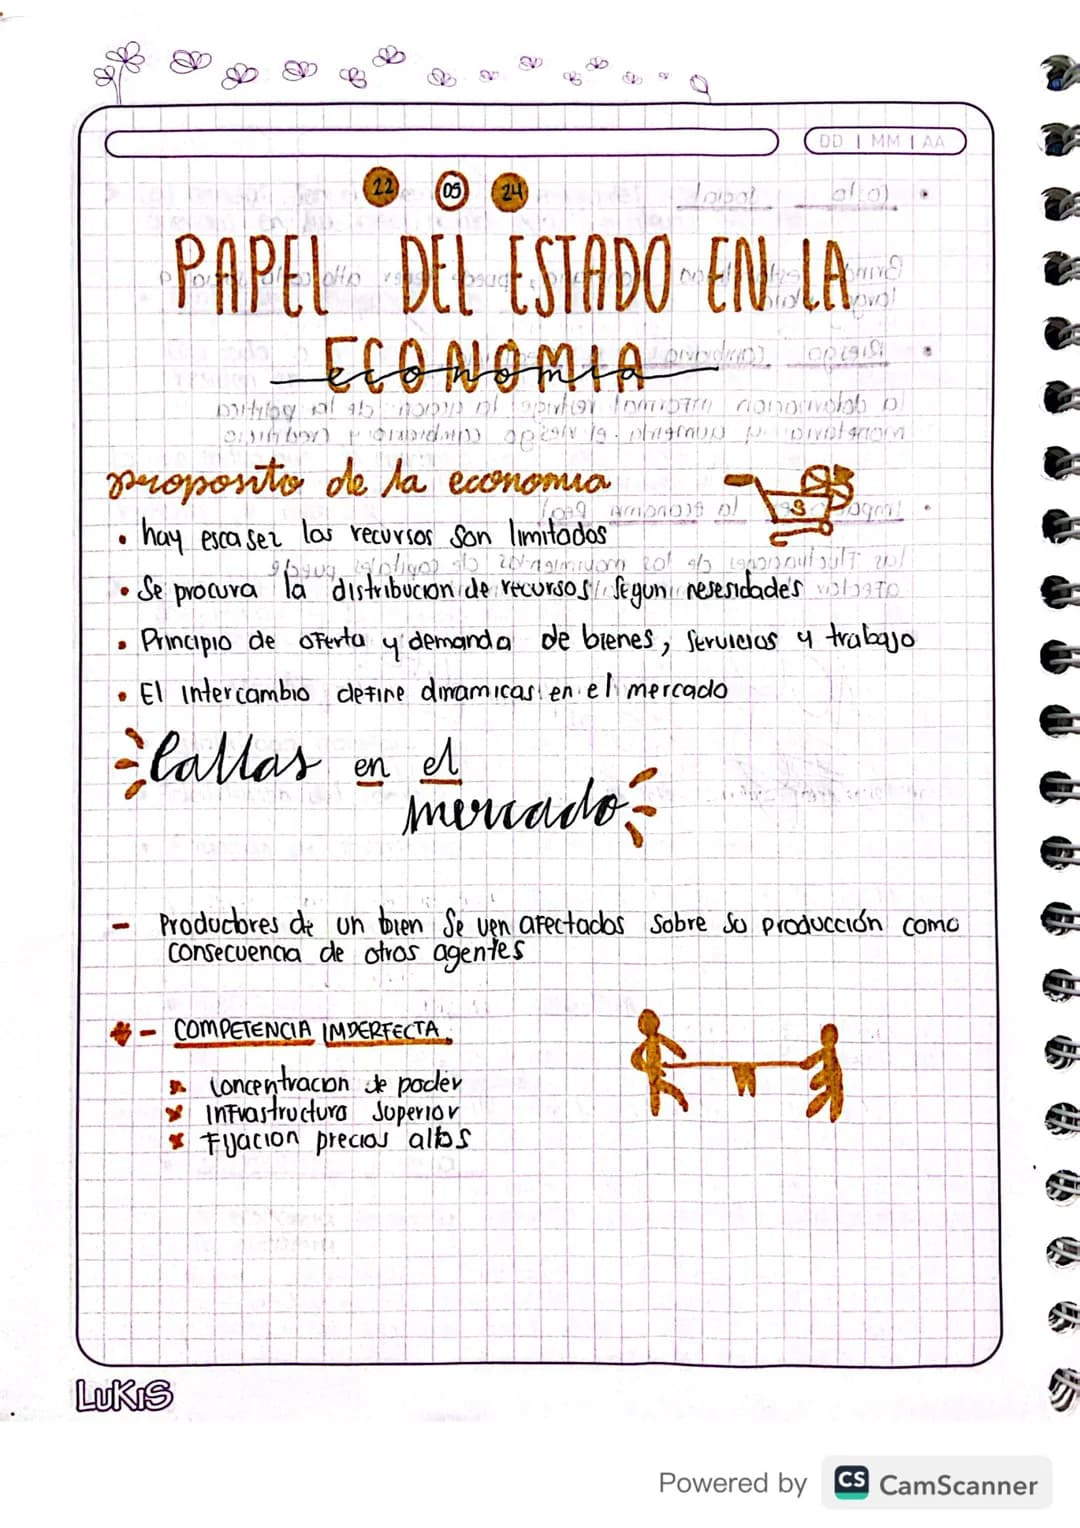 DD | MM | AA
22 05 24
PAPEL DEL ESTADO EN LA
ECONOMIA
proposito de la economia
$
• hay escasez los recursos son limitados
• Se procura la distribucion de recursos Segun nesesidades
• Principio de oferta y demanda de bienes, servicios y trabajo
• El intercambio define dinamicas en el mercado
fallas en el
mercado
- Productores de un bien Se ven afectados Sobre su producción como
consecuencia de otros agentes
- COMPETENCIA IMPERFECTA
Concentracion de poder
Infrastructura Superior
Fijacion precios altos
LUKIS
Powered by CS CamScanner